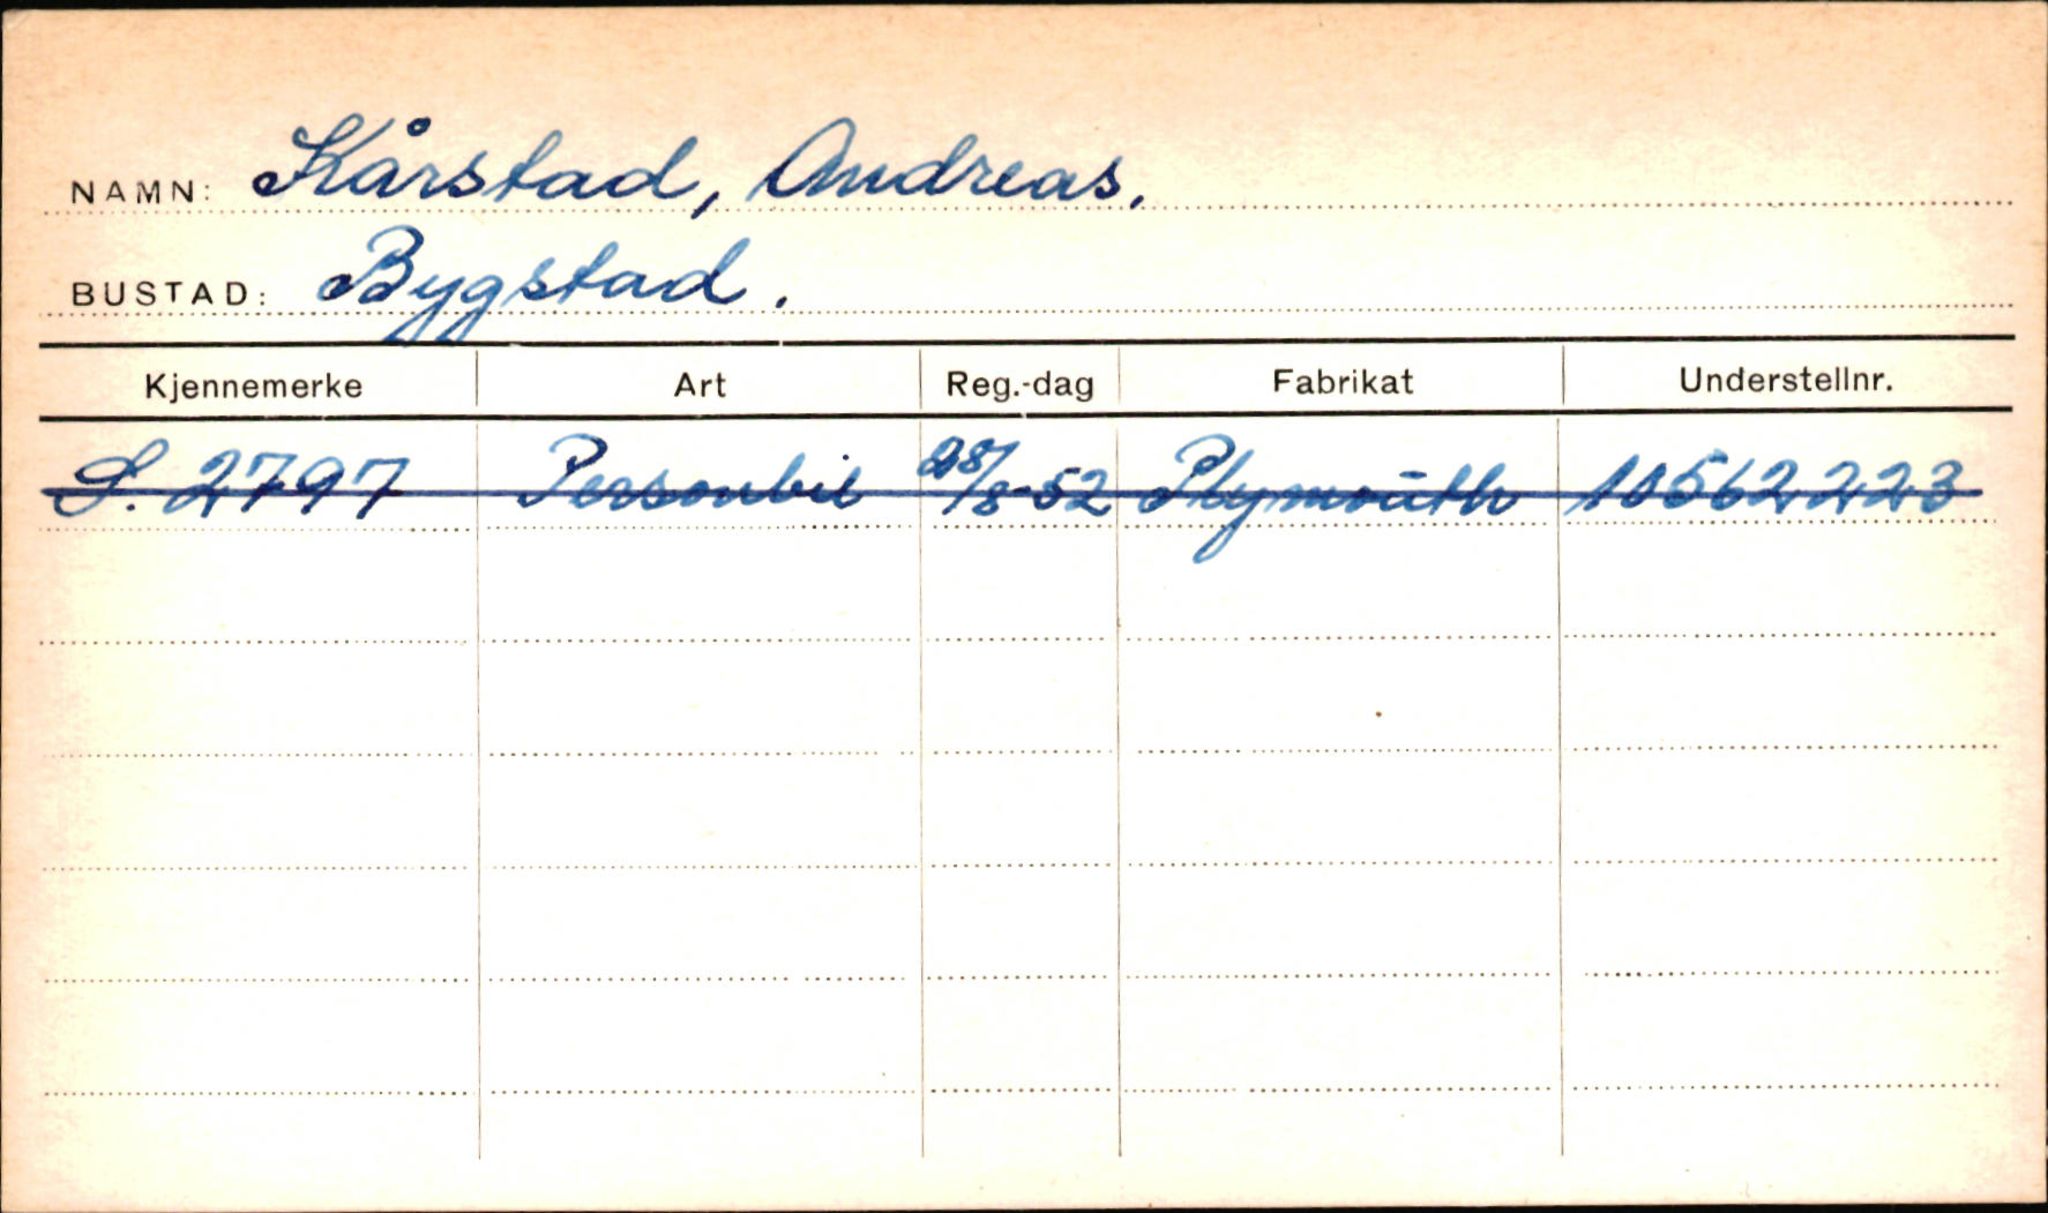 NAMN: Kårstad, Andreas.
BUSTAD: Bygstad.
Kjennemerke Art Reg.-dag Fabrikat Understellnr.
S. 2797 Personbil 28/8-52 Plymouth 10562223